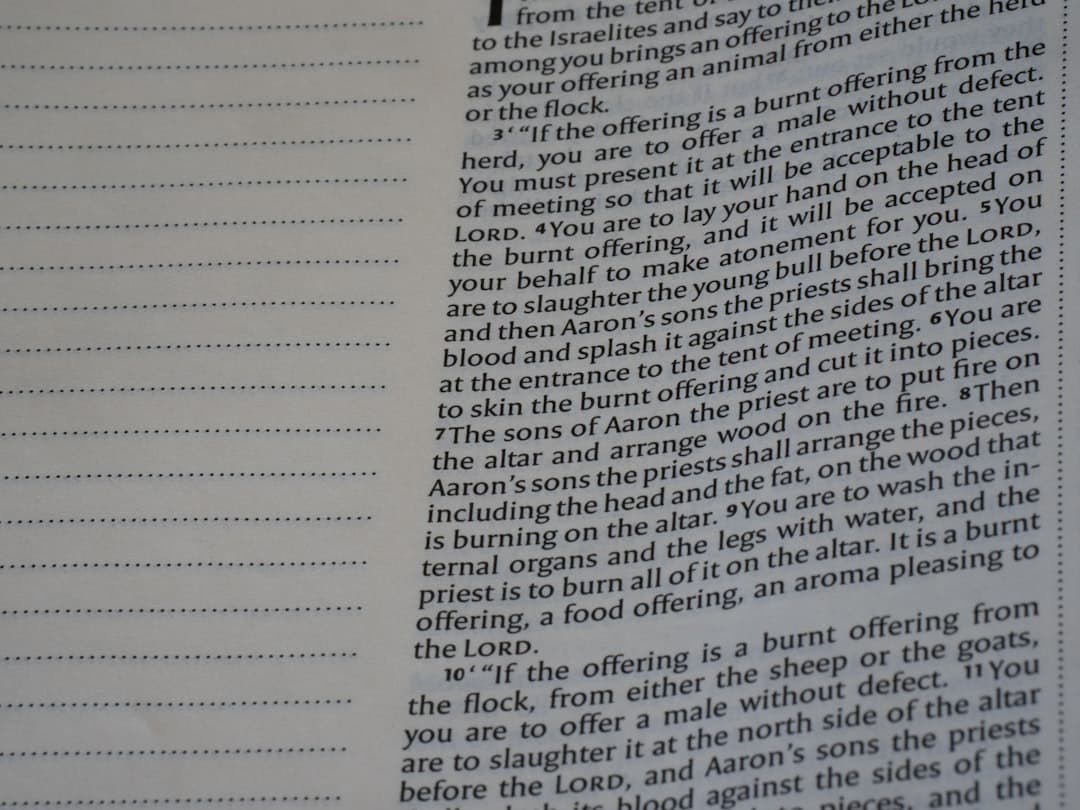 from the tent of
to the Israelites and say to them
among you brings an offering to the LORD
as your offering an animal from either the herd
or the flock.
3‘“If the offering is a burnt offering from the
herd, you are to offer a male without defect.
You must present it at the entrance to the tent
of meeting so that it will be acceptable to the
LORD. 4You are to lay your hand on the head of
the burnt offering, and it will be accepted on
your behalf to make atonement for you. 5You
are to slaughter the young bull before the LORD,
and then Aaron’s sons the priests shall bring the
blood and splash it against the sides of the altar
at the entrance to the tent of meeting. 6You are
to skin the burnt offering and cut it into pieces.
7The sons of Aaron the priest are to put fire on
the altar and arrange wood on the fire. 8Then
Aaron’s sons the priests shall arrange the pieces,
including the head and the fat, on the wood that
is burning on the altar. 9You are to wash the in-
ternal organs and the legs with water, and the
priest is to burn all of it on the altar. It is a burnt
offering, a food offering, an aroma pleasing to
the LORD.
10‘“If the offering is a burnt offering from
the flock, from either the sheep or the goats,
you are to offer a male without defect. 11You
are to slaughter it at the north side of the altar
before the LORD, and Aaron’s sons the priests
its blood against the sides of the
pieces, and the